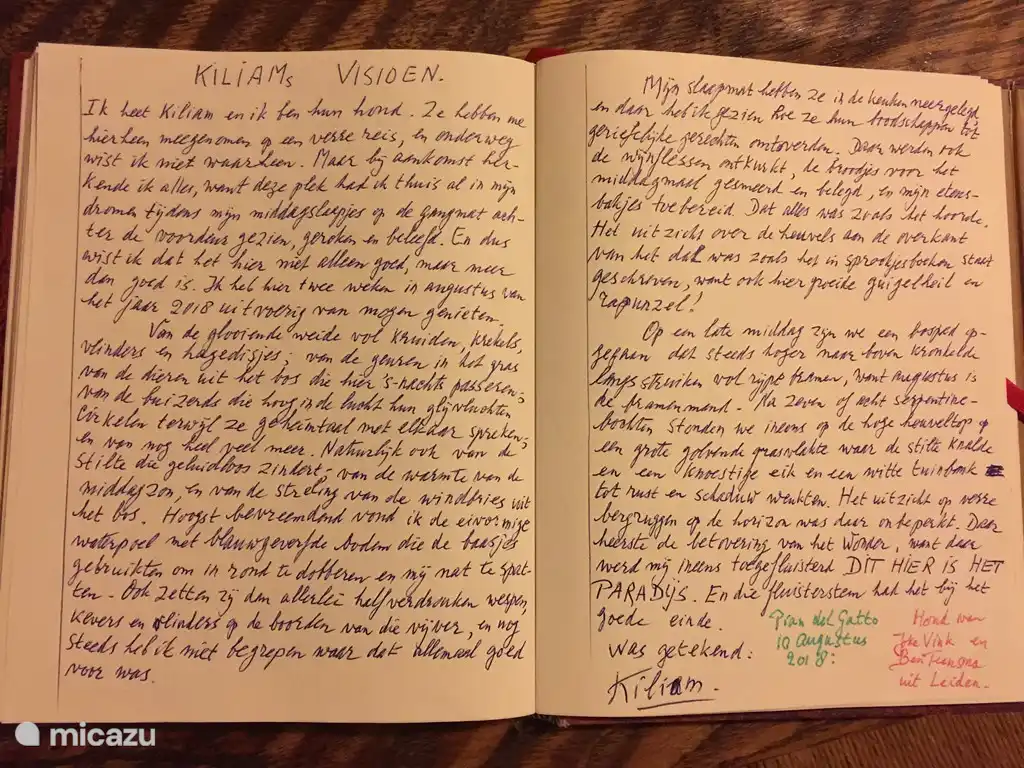 KILIAMs VISIOEN.
Ik heet Kiliam en ik ben hun hond. Ze hebben me
hierheen meegenomen op een verre reis, en onderweg
wist ik niet waarheen. Maar bij aankomst her-
kende ik alles, want deze plek had ik thuis al in mijn
dromen tijdens mijn middagslaapjes op de gangmat ach-
ter de voordeur gezien, geroken en beleefd. En dus
wist ik dat het hier niet alleen goed, maar meer
dan goed is. Ik heb hier twee weken in augustus van
het jaar 2018 uitvoerig van mogen genieten.
Van de glooiende weide vol kruiden, krekels,
vlinders en hagedisjes; van de geuren in het gras
van de dieren uit het bos die hier 's-nachts passeren;
van de buizerds die hoog in de lucht hun glijvluchten
cirkelen terwijl ze geheimtaal met elkaar spreken;
en van nog heel veel meer. Natuurlijk ook van de
stilte die geluidloos zindert; van de warmte van de
middagzon, en van de streling van de windbries uit
het bos. Hoogst bevreemdend vond ik de eivormige
waterpoel met blauwgeverfde bodem die de baasjes
gebruikten om in rond te dobberen en mij nat te spat-
ten. Ook zetten zij dan allerlei halfverdronken wespen,
kevers en vlinders op de boorden van die vijver, en nog
steeds heb ik niet begrepen waar dat allemaal goed
voor was.
Mijn slaapmat hebben ze in de keuken neergelegd
en daar heb ik gezien hoe ze hun boodschappen tot
geriefelijke gerechten omtoverden. Daar werden ook
de wijnflessen ontkurkt, de broodjes voor het
middagmaal gesmeerd en belegd, en mijn etens-
bakjes toebereid. Dat alles was zoals het hoorde.
Het uitzicht over de heuvels aan de overkant
van het dal was zoals het in sprookjesboeken staat
geschreven, want ook hier groeide guigelheil en
rapunzel!
Op een late middag zijn we een bospad op-
gegaan dat steeds hoger naar boven kronkelde
langs struiken vol rijpe bramen, want augustus is
de bramenmaand. Na zeven of acht serpentine-
bochten stonden we ineens op de hoge heuveltop op
een grote golvende grasvlakte waar de stilte knalde
en een knoestige eik en een witte tuinbank
tot rust en schaduw wenkten. Het uitzicht op verre
bergruggen op de horizon was daar onbeperkt. Daar
heerste de betovering van het Wonder, want daar
werd mij ineens toegefluisterd DIT HIER IS HET
PARADIJS. En die fluisterstem had het bij het
goede einde.
Was getekend:
Kiliam.
Pian del Gatto
10 augustus
2018:
Hond van
Vink en
Ben
uit Leiden.
micazu